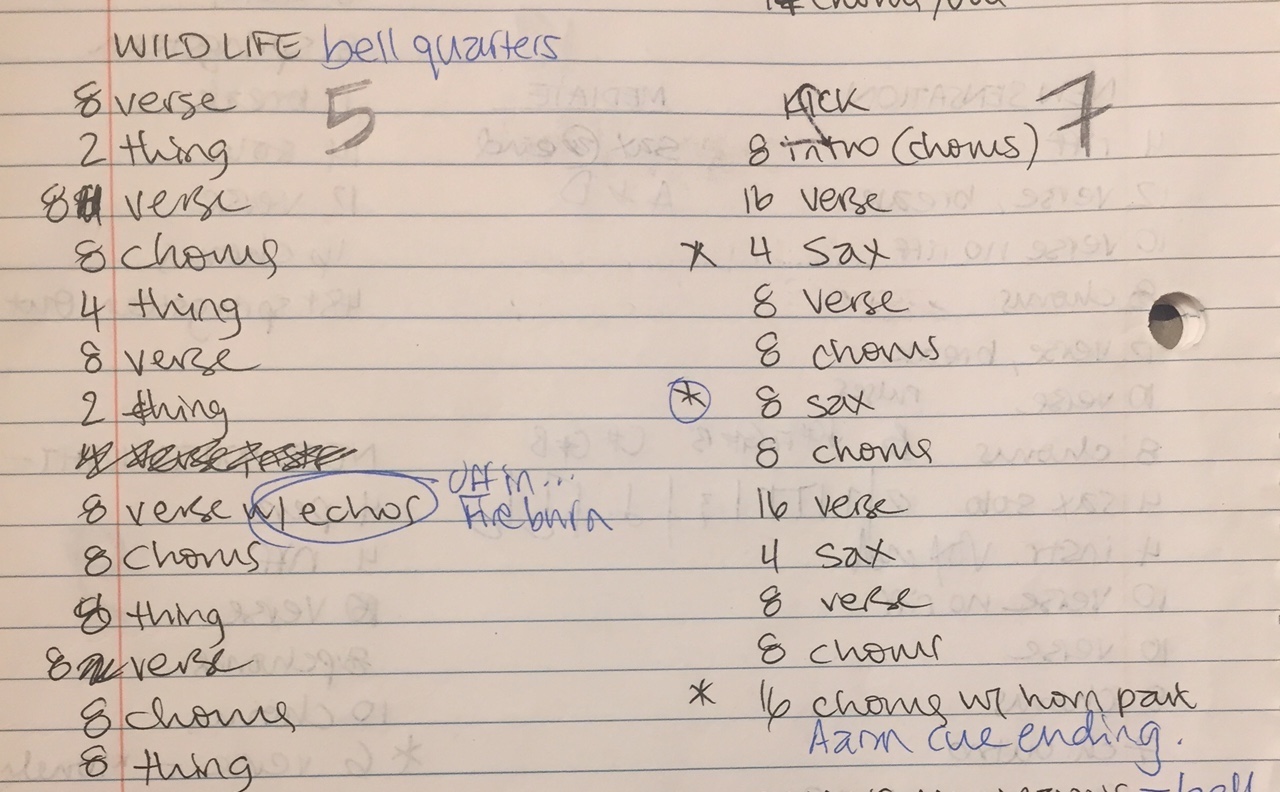 WILD LIFE bell quarters
5
8 verse
2 thing
8 verse
8 chorus
4 thing
8 verse
2 thing
8 verse w/ echos off in...
8 chorus
8 thing
8 verse
8 chorus
8 thing
KICK 7
8 intro (chorus)
16 verse
* 4 sax
8 verse
8 chorus
* 8 sax
8 chorus
16 verse
4 sax
8 verse
8 chorus
* 16 chorus w/ horn part
cue ending.